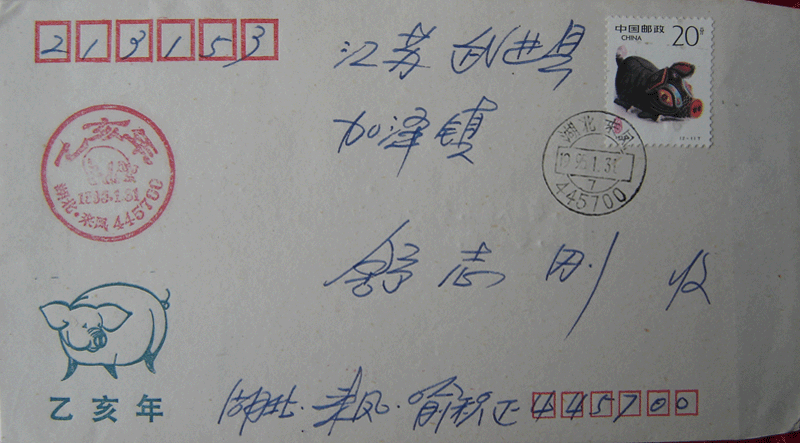 213153
中国邮政 20分
CHINA
江苏武进县
加泽镇
乙亥年
1995.1.31
湖北·来凤 445700
湖北来凤
1995.1.31
7
445700
舒志刚 收
乙亥年
湖北·来凤·俞积正 445700